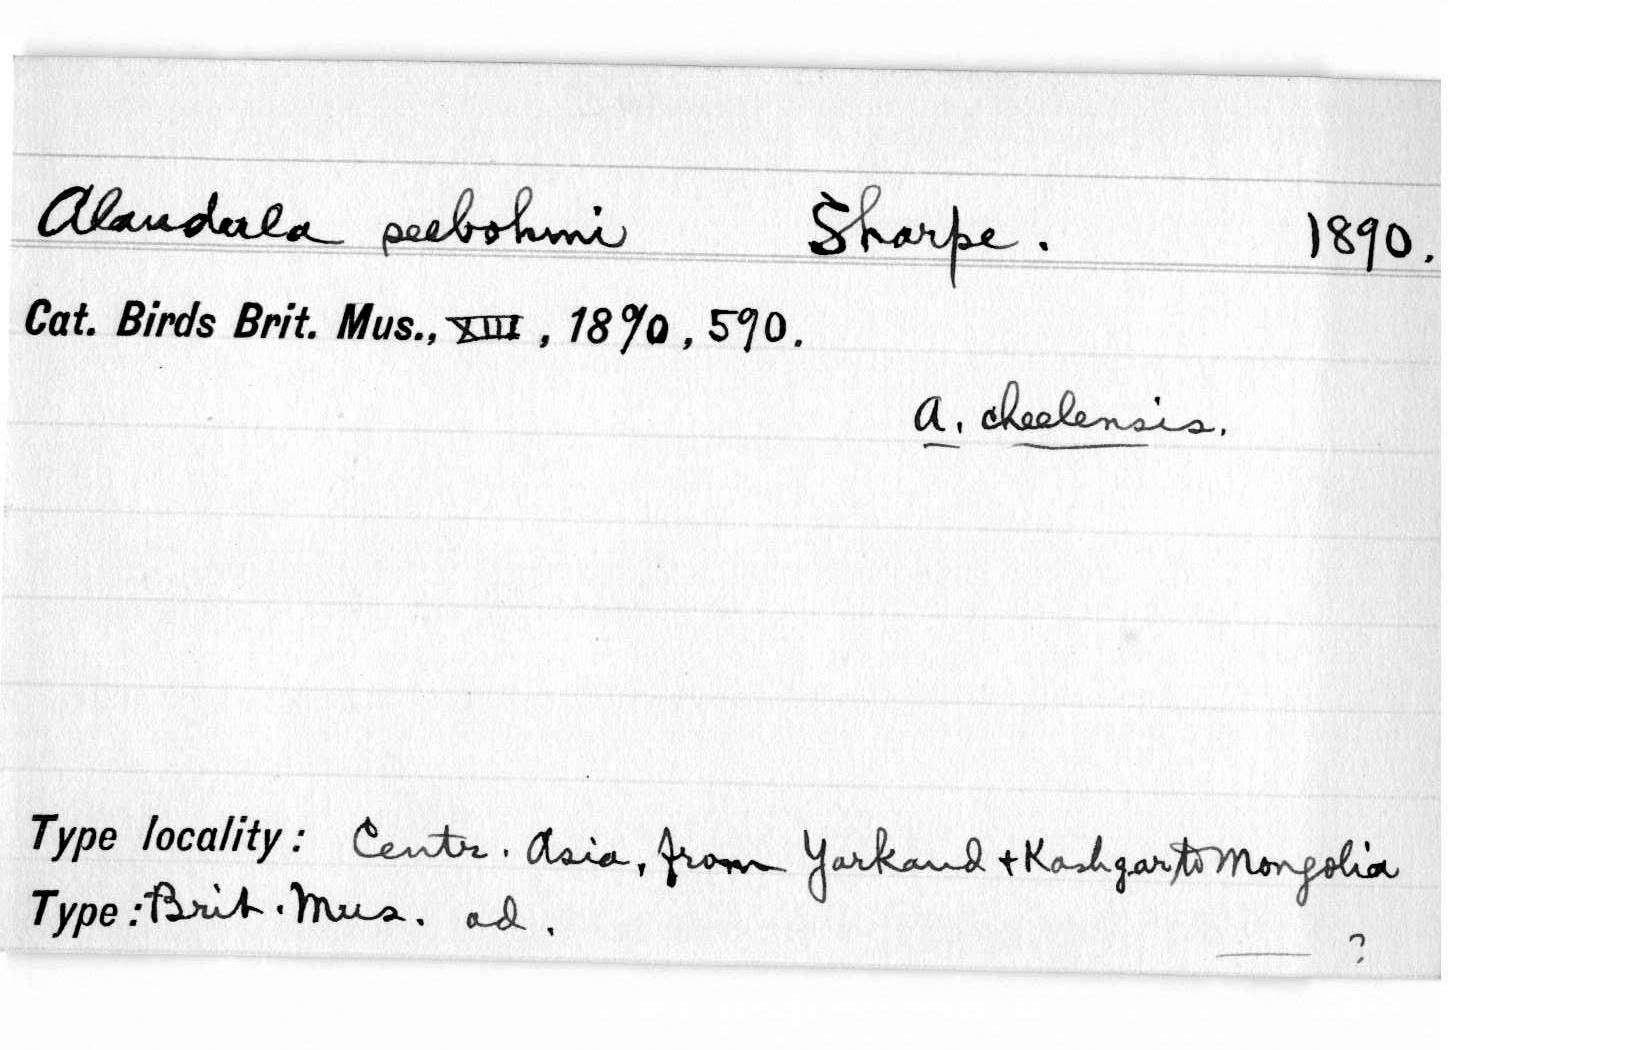 Alaudula seebohmi Sharpe. 1890.
Cat. Birds Brit. Mus., XIII, 1890, 590.
A. cheelensis.
Type locality: Centr. Asia, from Yarkand + Kashgar to Mongolia
Type: Brit. Mus. ad.
— ?